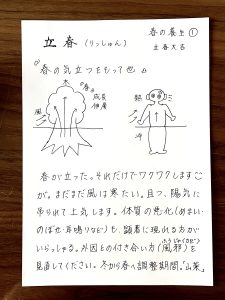 春の養生①
立春大吉
立春(りっしゅん)
『春の気立つをもって也』
木
"春"
成長
伸展
風
熱
春が立った。それだけでワクワクします
が。まだまだ風は寒たい。且つ、陽気に
吊られて上気します。体質の悪化(めまい・
のぼせ・耳鳴りなど)も、顕著に現れる方が
いらっしゃる。外因との付き合い方(風邪)を
ふうじゃ(カゼ)
見直してください。冬から春へ調整期間。「山薬」